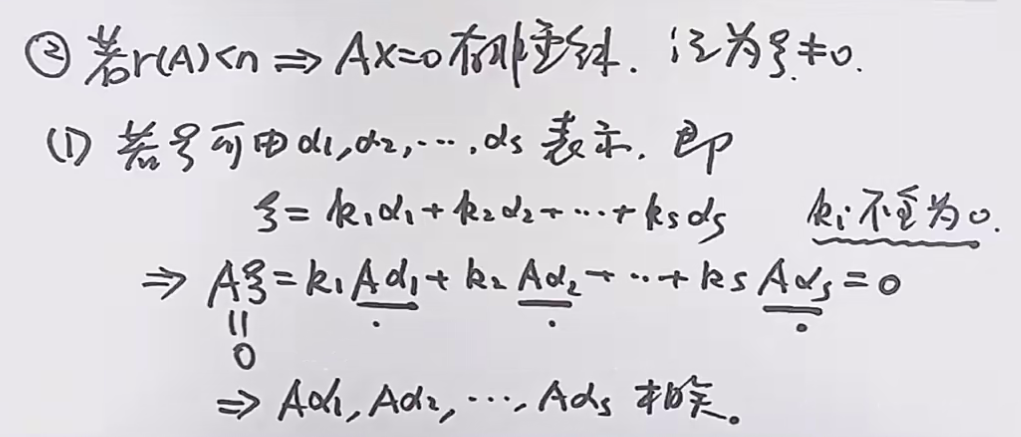 ② 若r(A)<n ⇒ AX=0有非零解. 记为ξ≠0.
(1) 若ξ可由α1,α2,…,αs表示. 即
ξ=k1α1+k2α2+…+ksαs  ki不全为0.
⇒ Aξ=k1Aα1+k2Aα2+…+ksAαs=0
||
0
⇒ Aα1,Aα2,…,Aαs 相关。